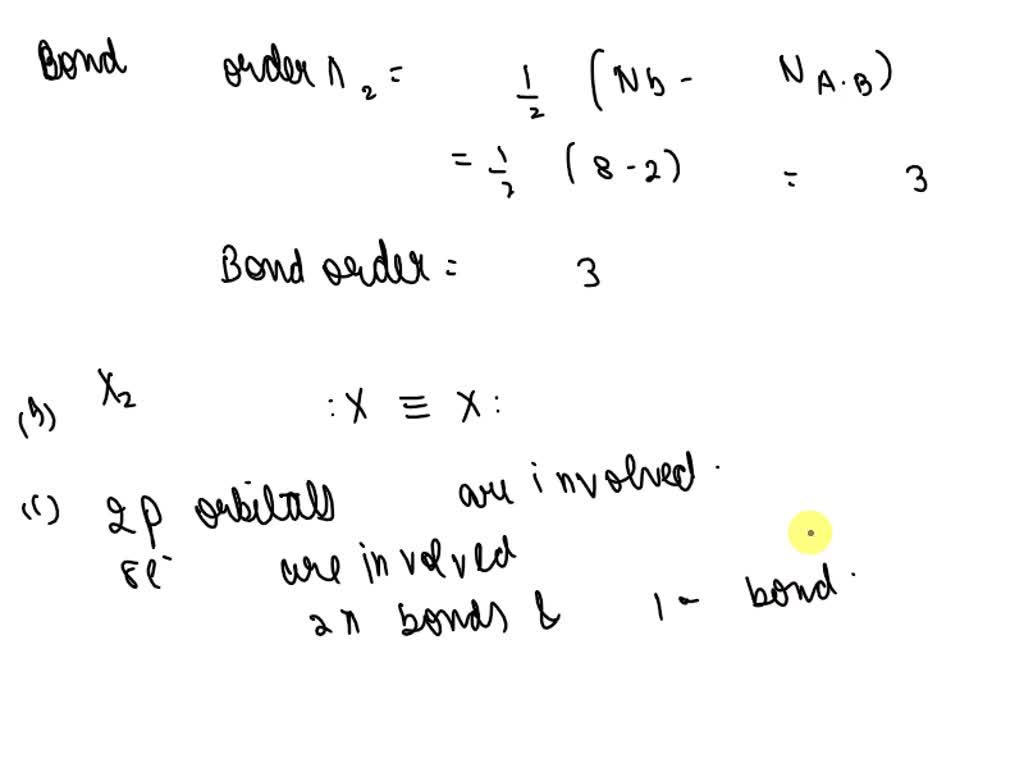 Bond order n₂ = 1/2 (Nb - N A.B)
= 1/2 (8 - 2) = 3
Bond order = 3
(b) X₂ :X ≡ X:
(c) 2p orbitals are involved.
8e⁻ are involved
2π bonds & 1 - bond.